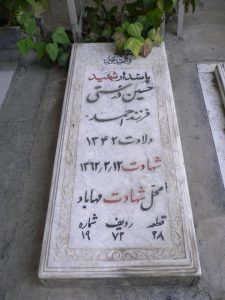 پاسدار شهید
حسین درستی
فرزند احمد
ولادت ۱۳۴۲
شهادت ۱۳۶۲/۲/۱۲
محل شهادت مهاباد
قطعه ردیف شماره
۲۸ ۷۲ ۱۹